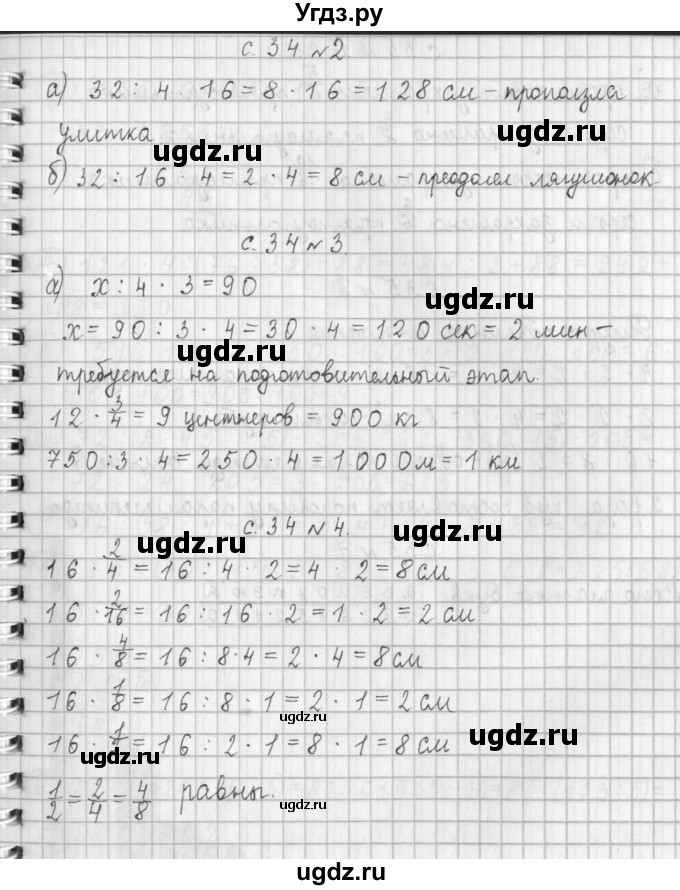 Угдз.ру
с. 34. №2
а) 32 : 4 · 16 = 8 · 16 = 128 см – проползла
улитка
ugdz.ru
б) 32 : 16 · 4 = 2 · 4 = 8 см – преодолел лягушонок
ugdz.ru
с. 34 № 3.
а) x : 4 · 3 = 90
ugdz.ru
x = 90 : 3 · 4 = 30 · 4 = 120 сек = 2 мин –
ugdz.ru
требуется на подготовительный этап.
12 · 3/4 = 9 центнеров = 900 кг
ugdz.ru
750 : 3 · 4 = 250 · 4 = 1000 м = 1 км
с. 34 № 4.
ugdz.ru
ugdz.ru
16 · 2/4 = 16 : 4 · 2 = 4 · 2 = 8 см
16 · 2/16 = 16 : 16 · 2 = 1 · 2 = 2 см
ugdz.ru
16 · 4/8 = 16 : 8 · 4 = 2 · 4 = 8 см
ugdz.ru
16 · 1/8 = 16 : 8 · 1 = 2 · 1 = 2 см
ugdz.ru
16 · 1/ = 16 : 2 · 1 = 8 · 1 = 8 см
ugdz.ru
ugdz.ru
1/2 = 2/4 = 4/8 равны.
ugdz.ru
ugdz.ru